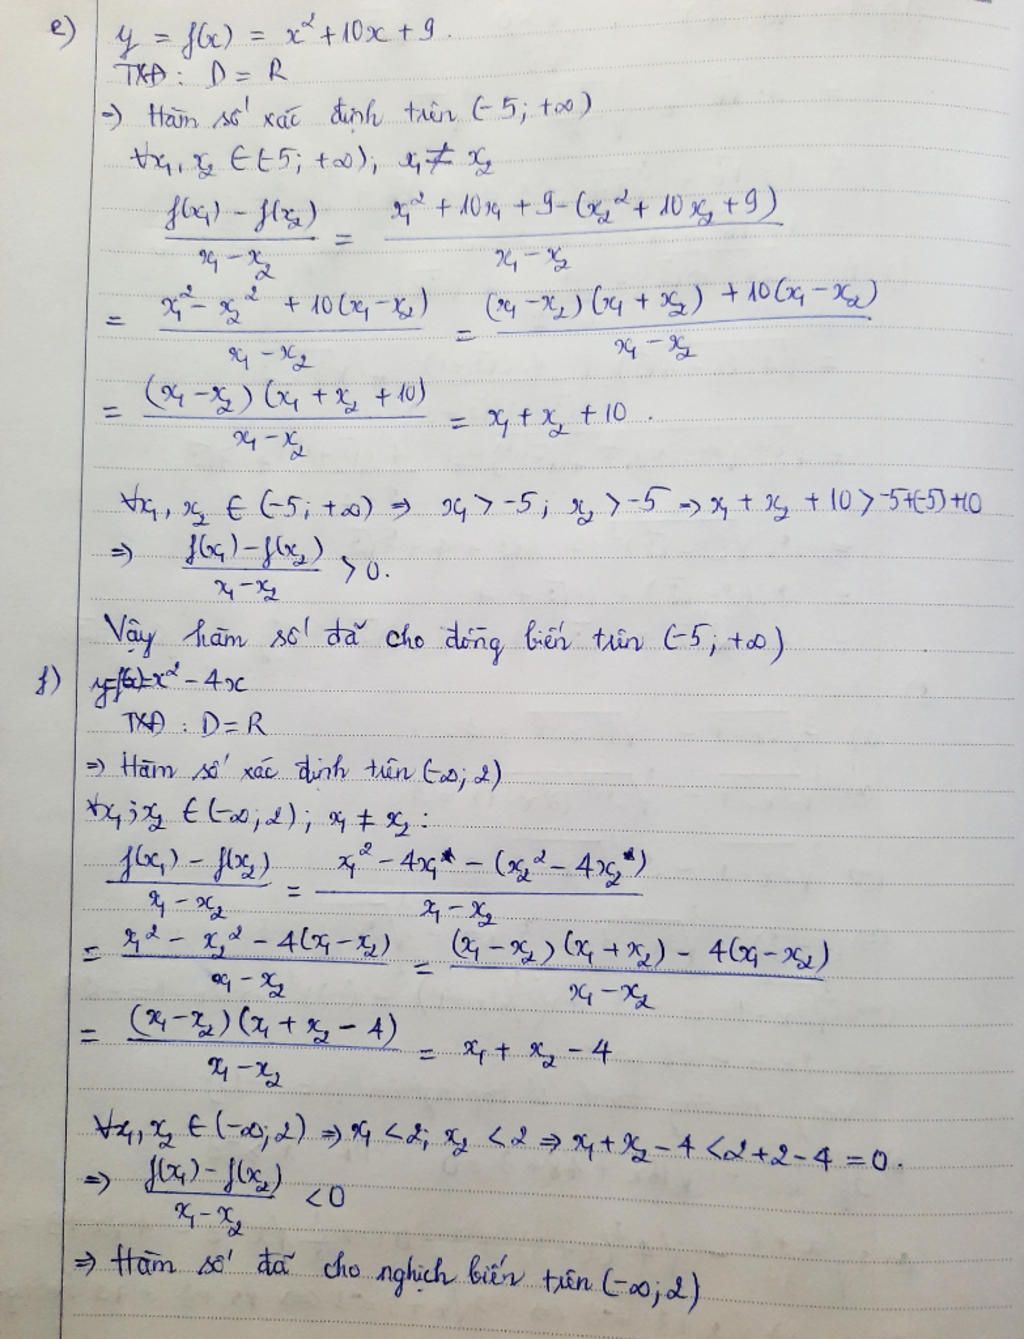 e) y = f(x) = x² + 10x + 9.
TXĐ : D = R
=> Hàm số xác định trên (-5; +∞)
∀x₁, x₂ ∈ (-5; +∞); x₁ ≠ x₂
(f(x₁) - f(x₂))/(x₁ - x₂) = (x₁² + 10x₁ + 9 - (x₂² + 10x₂ + 9))/(x₁ - x₂)
= (x₁² - x₂² + 10(x₁ - x₂))/(x₁ - x₂) = ((x₁ - x₂)(x₁ + x₂) + 10(x₁ - x₂))/(x₁ - x₂)
= ((x₁ - x₂)(x₁ + x₂ + 10))/(x₁ - x₂) = x₁ + x₂ + 10.
∀x₁, x₂ ∈ (-5; +∞) => x₁ > -5; x₂ > -5 => x₁ + x₂ + 10 > -5+(-5)+10
=> (f(x₁) - f(x₂))/(x₁ - x₂) > 0.
Vậy hàm số đã cho đồng biến trên (-5; +∞)
f) y=f(x)=x² - 4x
TXĐ : D = R
=> Hàm số xác định trên (-∞; 2)
∀x₁; x₂ ∈ (-∞; 2); x₁ ≠ x₂ :
(f(x₁) - f(x₂))/(x₁ - x₂) = (x₁² - 4x₁ - (x₂² - 4x₂))/(x₁ - x₂)
= (x₁² - x₂² - 4(x₁ - x₂))/(x₁ - x₂) = ((x₁ - x₂)(x₁ + x₂) - 4(x₁ - x₂))/(x₁ - x₂)
= ((x₁ - x₂)(x₁ + x₂ - 4))/(x₁ - x₂) = x₁ + x₂ - 4
∀x₁, x₂ ∈ (-∞; 2) => x₁ < 2; x₂ < 2 => x₁ + x₂ - 4 < 2 + 2 - 4 = 0.
=> (f(x₁) - f(x₂))/(x₁ - x₂) < 0
=> Hàm số đã cho nghịch biến trên (-∞; 2)